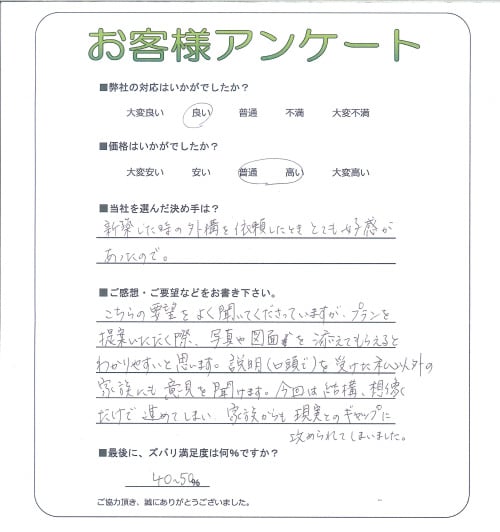 お客様アンケート
■弊社の対応はいかがでしたか？
大変良い 良い 普通 不満 大変不満
■価格はいかがでしたか？
大変安い 安い 普通 高い 大変高い
■当社を選んだ決め手は？
新築した時の外構を依頼したときとても好感が
あったので。
■ご感想・ご要望などをお書き下さい。
こちらの要望をよく聞いてくださっていますが、プランを
提案いただく際、写真や図面を添えてもらえると
わかりやすいと思います。説明(口頭で)を受けた私以外の
家族にも意見を聞けます。今回は結構、想像
だけで進めてしまい 家族からも現実とのギャップに
攻められてしまいました。
■最後に、ズバリ満足度は何%ですか？
40~50%
ご協力頂き、誠にありがとうございました。